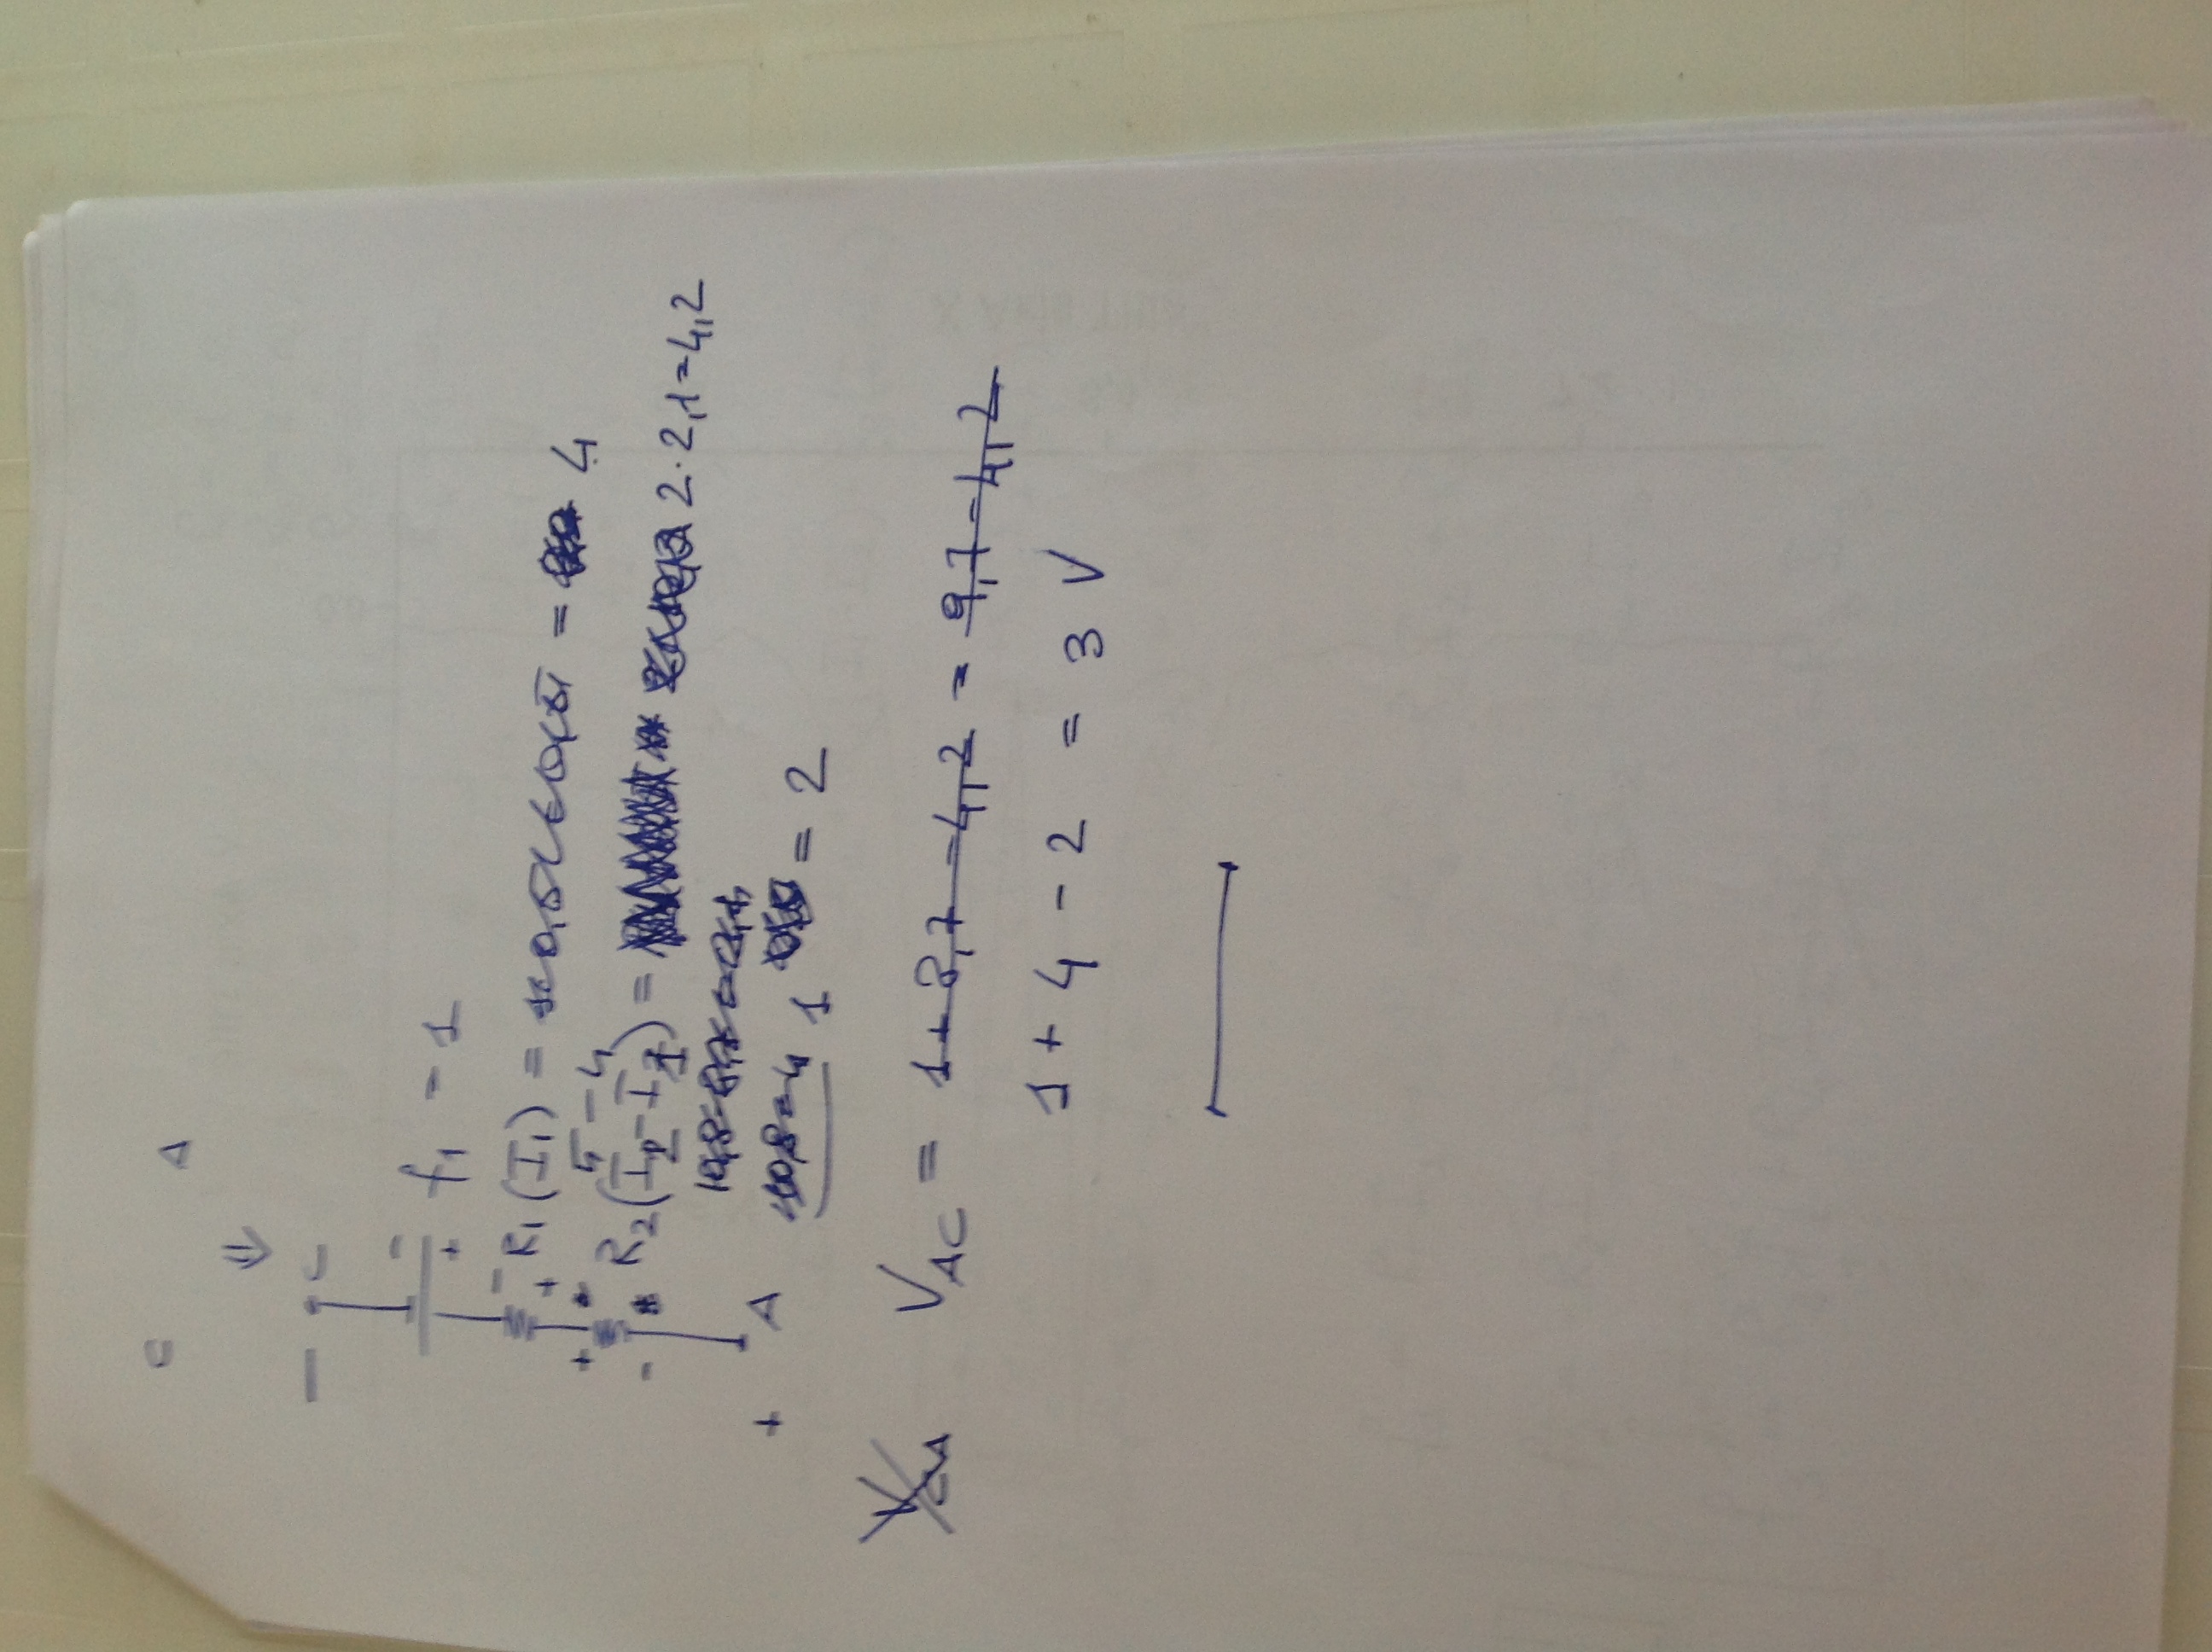 C A
⇓
— C
-
+ f₁ = 1
-
+ R₁ (I₁) = = 4
+ 5 - 4
- R₂ (I₂ - I₁) = 2 · 2,1 = 4,2
10,8 - 8,7 = 2,1
+ A 10,8 - 4 1 = 2
V_CA V_AC = 1 + 8,7 - 4,2 = 9,7 - 4,2
1 + 4 - 2 = 3 V